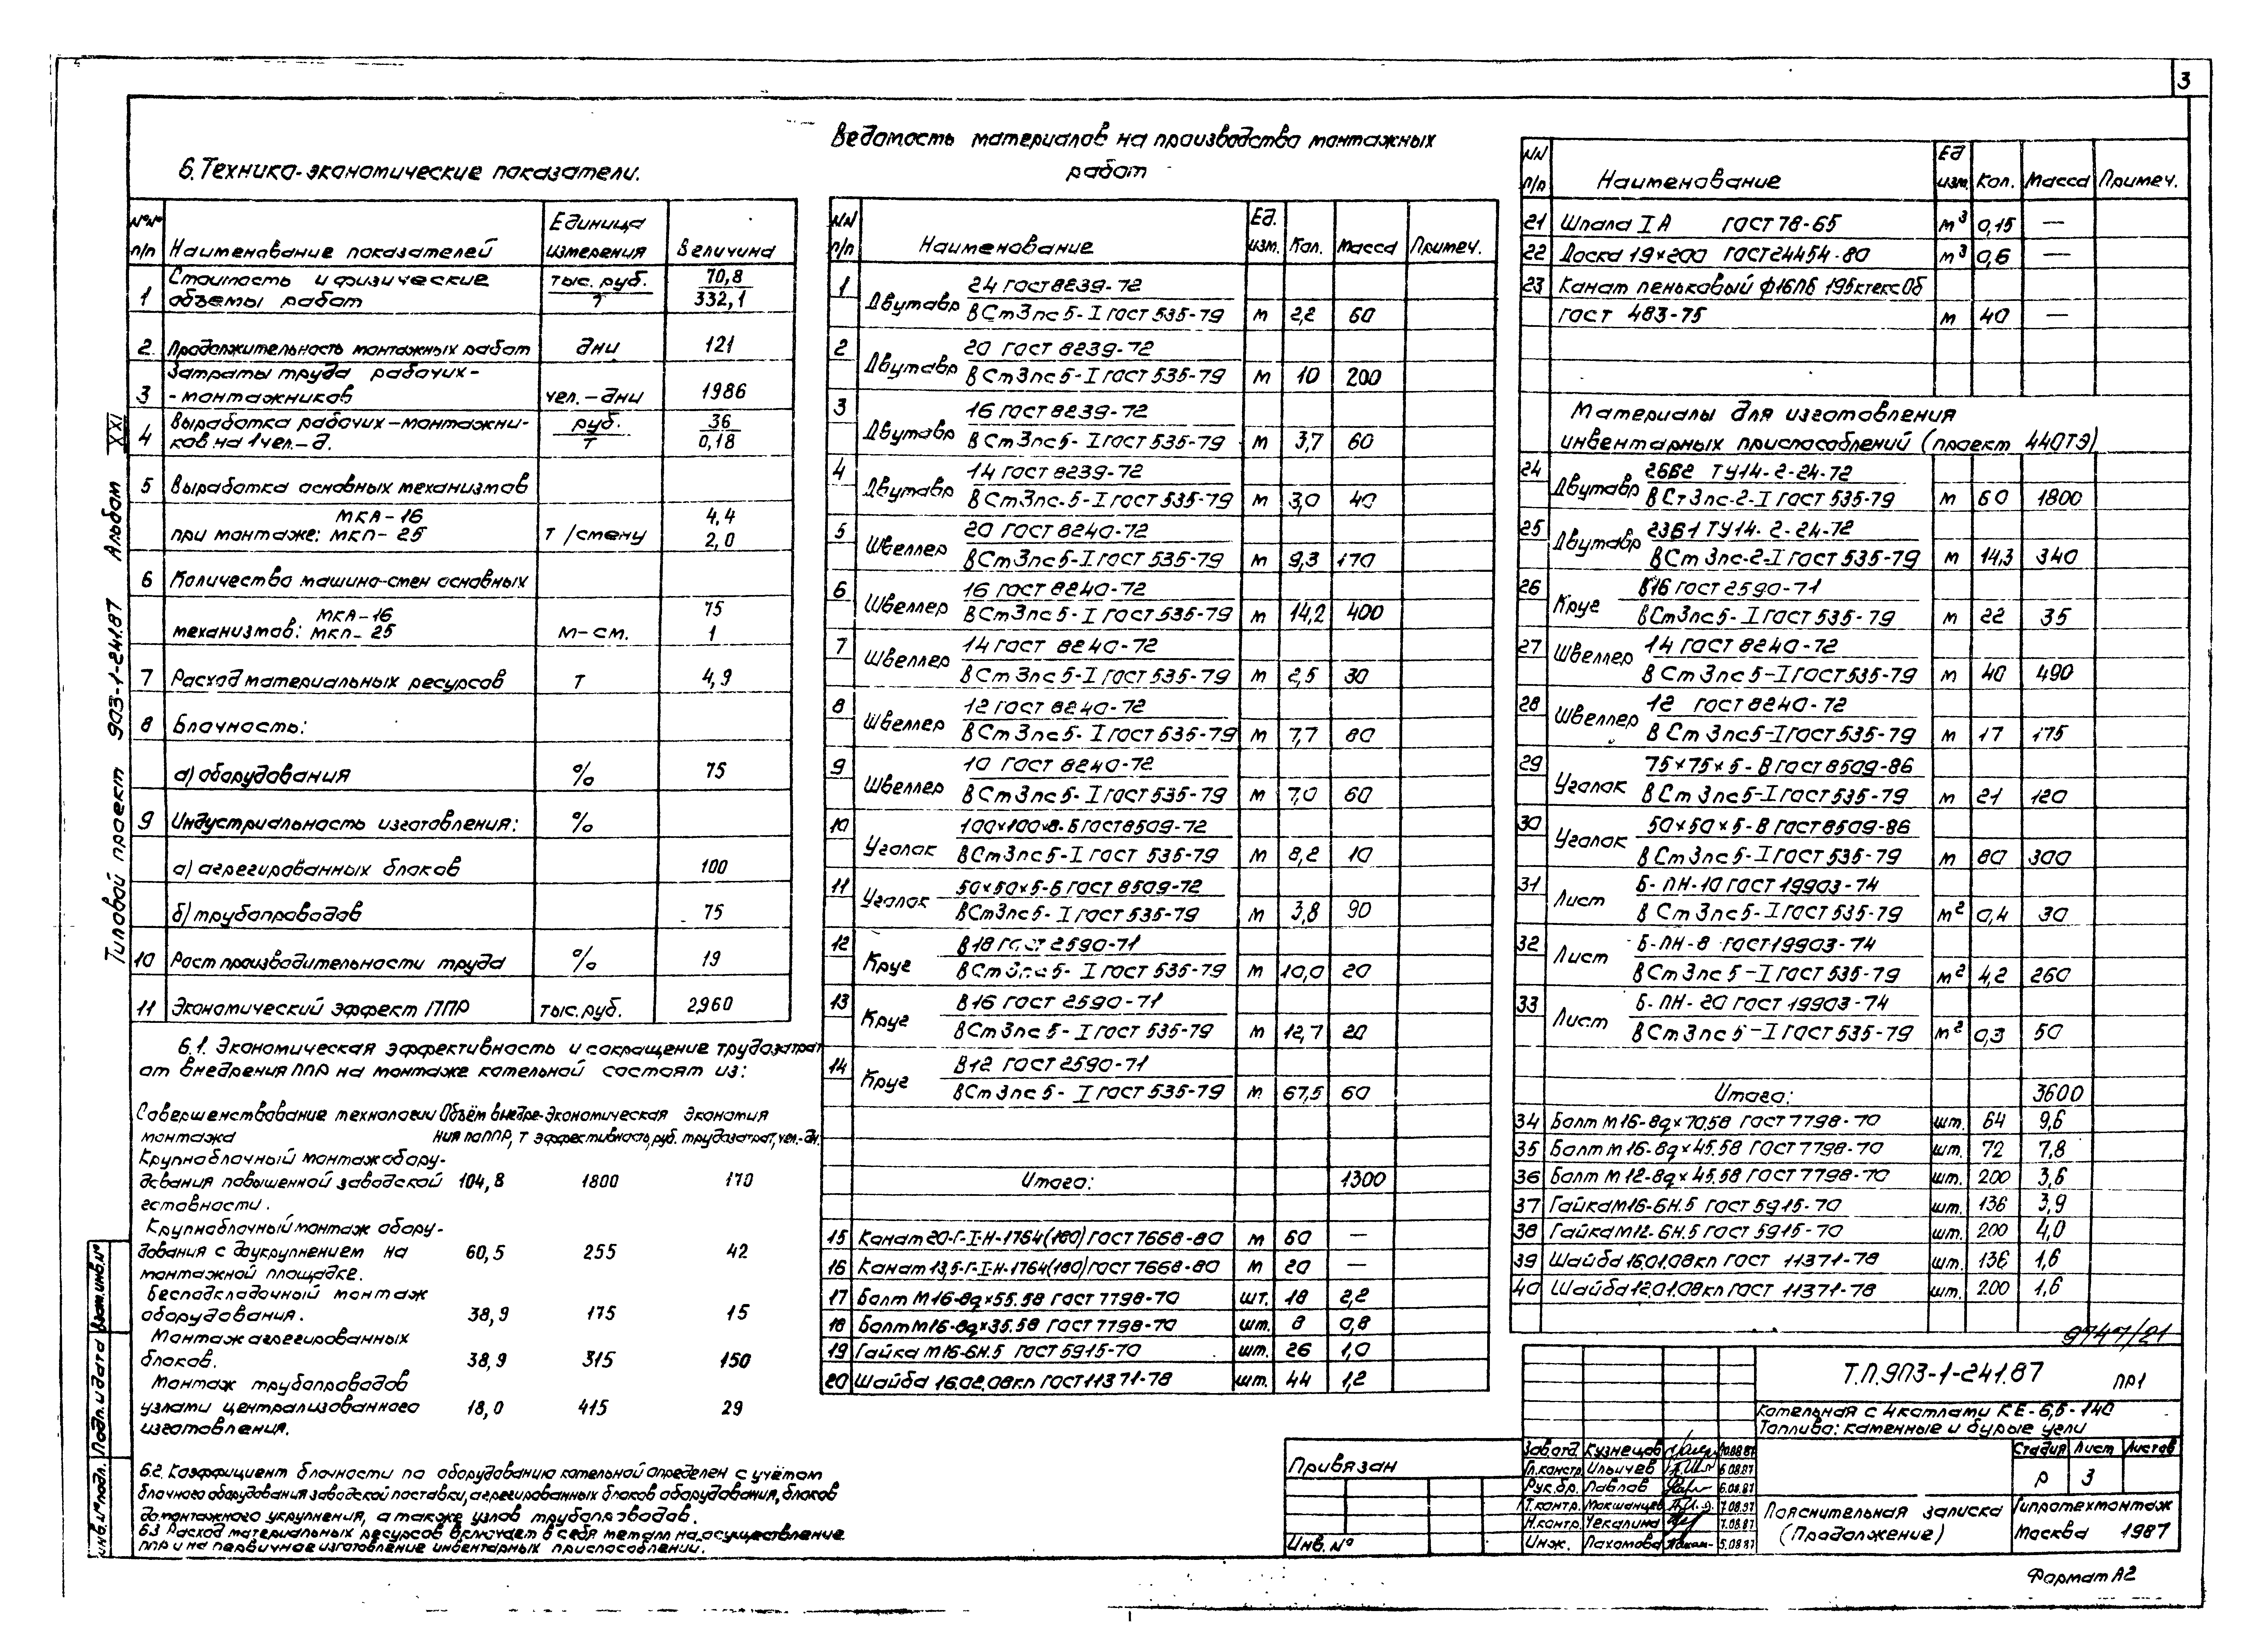 3
6. Технико-экономические показатели.
№№ п/п Наименование показателей Единица измерения Величина
1 Стоимость и физические объемы работ тыс. руб. / т 70,8 / 332,1
2 Продолжительность монтажных работ дни 121
3 Затраты труда рабочих-
-монтажников чел.-дни 1986
4 Выработка рабочих-монтажни-
ков на 1 чел.-д. руб. / т 36 / 0,18
5 Выработка основных механизмов
при монтаже: МКА-16 4,4
МКП-25 т/смену 2,0
6 Количество машино-смен основных
механизмов: МКА-16 75
МКП-25 м-см. 1
7 Расход материальных ресурсов т 4,9
8 Блочность:
а) оборудования % 75
9 Индустриальность изготовления: %
а) агрегированных блоков 100
б) трубопроводов 75
10 Рост производительности труда % 19
11 Экономический эффект ППР тыс. руб. 2,960
6.1. Экономическая эффективность и сокращение трудозатрат
от внедрения ППР на монтаже котельной состоят из:
Совершенствование технологии монтажа Объём внедре-ния по ППР, т Экономическая эффективность, руб. Экономия трудозатрат, чел.-дн.
Крупноблочный монтаж обору-
дования повышенной заводской 104,8 1800 170
готовности.
Крупноблочный монтаж обору-
дования с доукрупнением на 60,5 255 42
монтажной площадке.
Бесподкладочный монтаж
оборудования. 38,9 175 15
Монтаж агрегированных
блоков. 38,9 315 150
Монтаж трубопроводов
узлами централизованного 18,0 415 29
изготовления.
6.2. Коэффициент блочности по оборудованию котельной определен с учётом
блочного оборудования заводской поставки, агрегированных блоков оборудования, блоков
домонтажного укрупнения, а также узлов трубопроводов.
6.3 Расход материальных ресурсов включает в себя металл на осуществление
ППР и на первичное изготовление инвентарных приспособлений.
Ведомость материалов на производство монтажных
работ
NN п/п Наименование Ед. изм. Кол. Масса Примеч.
1 Двутавр 24 ГОСТ 8239-72 / ВСт3пс5-I ГОСТ 535-79 м 2,2 60
2 Двутавр 20 ГОСТ 8239-72 / ВСт3пс5-I ГОСТ 535-79 м 10 200
3 Двутавр 16 ГОСТ 8239-72 / ВСт3пс5-I ГОСТ 535-79 м 3,7 60
4 Двутавр 14 ГОСТ 8239-72 / ВСт3пс-5-I ГОСТ 535-79 м 3,0 40
5 Швеллер 20 ГОСТ 8240-72 / ВСт3пс5-I ГОСТ 535-79 м 9,3 170
6 Швеллер 16 ГОСТ 8240-72 / ВСт3пс5-I ГОСТ 535-79 м 14,2 400
7 Швеллер 14 ГОСТ 8240-72 / ВСт3пс5-I ГОСТ 535-79 м 2,5 30
8 Швеллер 12 ГОСТ 8240-72 / ВСт3пс5-I ГОСТ 535-79 м 7,7 80
9 Швеллер 10 ГОСТ 8240-72 / ВСт3пс5-I ГОСТ 535-79 м 7,0 60
10 Уголок 100×100×8-Б ГОСТ 8509-72 / ВСт3пс5-I ГОСТ 535-79 м 8,2 10
11 Уголок 50×50×5-Б ГОСТ 8509-72 / ВСт3пс5-I ГОСТ 535-79 м 3,8 90
12 Круг В18 ГОСТ 2590-71 / ВСт3пс5-I ГОСТ 535-79 м 10,0 20
13 Круг В16 ГОСТ 2590-71 / ВСт3пс5-I ГОСТ 535-79 м 12,7 20
14 Круг В12 ГОСТ 2590-71 / ВСт3пс5-I ГОСТ 535-79 м 67,5 60
Итого: 1300
15 Канат 20-Г-I-Н-1764(180) ГОСТ 7668-80 м 60 —
16 Канат 13,5-Г-I-Н-1764(180) ГОСТ 7668-80 м 20 —
17 Болт М16-8g×55.58 ГОСТ 7798-70 шт. 18 2,2
18 Болт М16-8g×35.58 ГОСТ 7798-70 шт. 8 0,8
19 Гайка М16-6Н.5 ГОСТ 5915-70 шт. 26 1,0
20 Шайба 16.02.08кп ГОСТ 11371-78 шт. 44 1,2
NN п/п Наименование Ед изм. Кол. Масса Примеч.
21 Шпала I А ГОСТ 78-65 м³ 0,15 —
22 Доска 19×200 ГОСТ 24454-80 м³ 0,6 —
23 Канат пеньковый ф16ПБ 195ктекс Об
ГОСТ 483-75 м 40 —
Материалы для изготовления
инвентарных приспособлений (проект 440ТЭ)
24 Двутавр 26Б2 ТУ14-2-24-72 / ВСт3пс-2-I ГОСТ 535-79 м 60 1800
25 Двутавр 23Б1 ТУ14-2-24-72 / ВСт3пс-2-I ГОСТ 535-79 м 14,3 340
26 Круг В16 ГОСТ 2590-71 / ВСт3пс5-I ГОСТ 535-79 м 22 35
27 Швеллер 14 ГОСТ 8240-72 / ВСт3пс5-I ГОСТ 535-79 м 40 490
28 Швеллер 12 ГОСТ 8240-72 / ВСт3пс5-I ГОСТ 535-79 м 17 175
29 Уголок 75×75×5-В ГОСТ 8509-86 / ВСт3пс5-I ГОСТ 535-79 м 21 120
30 Уголок 50×50×5-В ГОСТ 8509-86 / ВСт3пс5-I ГОСТ 535-79 м 80 300
31 Лист Б-ПН-10 ГОСТ 19903-74 / ВСт3пс5-I ГОСТ 535-79 м² 0,4 30
32 Лист Б-ПН-8 ГОСТ 19903-74 / ВСт3пс5-I ГОСТ 535-79 м² 4,2 260
33 Лист Б-ПН-20 ГОСТ 19903-74 / ВСт3пс5-I ГОСТ 535-79 м² 0,3 50
Итого: 3600
34 Болт М16-8g×70.58 ГОСТ 7798-70 шт. 64 9,6
35 Болт М16-8g×45.58 ГОСТ 7798-70 шт. 72 7,8
36 Болт М12-8g×45.58 ГОСТ 7798-70 шт. 200 3,6
37 Гайка М16-6Н.5 ГОСТ 5915-70 шт. 136 3,9
38 Гайка М12-6Н.5 ГОСТ 5915-70 шт. 200 4,0
39 Шайба 16.01.08кп ГОСТ 11371-78 шт. 136 1,6
40 Шайба 12.01.08кп ГОСТ 11371-78 шт. 200 1,6
9747/21
Т.П.903-1-241.87 ПР1
Котельная с 4 котлами КЕ-6,5-14С
Топливо: каменные и бурые угли
Зав.отд. Кузнецов 10.08.87
Гл.констр. Ильичев 6.08.87
Рук.бр. Павлов 6.08.87
Т.контр. Мокшанцев 7.08.87
Н.контр. Чекалина 7.08.87
Инж. Пахомова 5.08.87
Стадия Лист Листов
Р 3
Пояснительная записка
(Продолжение)
Гипротехмонтаж
Москва 1987
Привязан
Инв. №
Формат А2
Типовой проект 903-1-241.87 Альбом XXI
Инв.№ подл. Подп. и дата Взам.инв.№